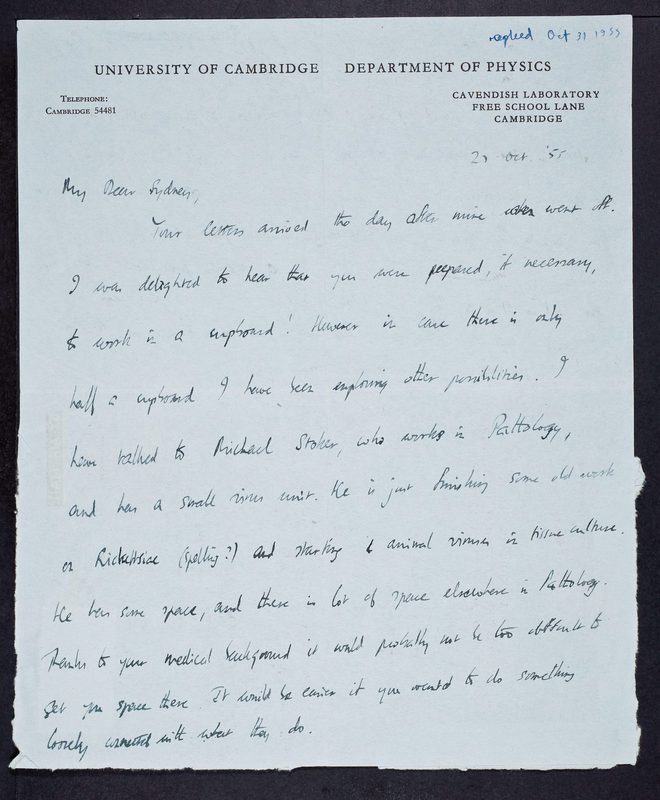 replied Oct 31 1955
UNIVERSITY OF CAMBRIDGE DEPARTMENT OF PHYSICS
TELEPHONE:
CAMBRIDGE 54481
CAVENDISH LABORATORY
FREE SCHOOL LANE
CAMBRIDGE
Oct '55
My Dear Sydney,
Your letters arrived the day after mine went off.
I was delighted to hear that you were prepared, if necessary,
to work in a cupboard! However in case there is only
half a cupboard I have been exploring other possibilities. I
have talked to Michael Stoker, who works in Pathology,
and has a small virus unit. He is just finishing some old work
on Rickettsiae (spelling?) and starting animal viruses in tissue culture.
He has some space, and there is lot of space elsewhere in Pathology.
Thanks to your medical background it would probably not be too difficult to
get you space there. It would be easier if you wanted to do something
loosely connected with what they do.